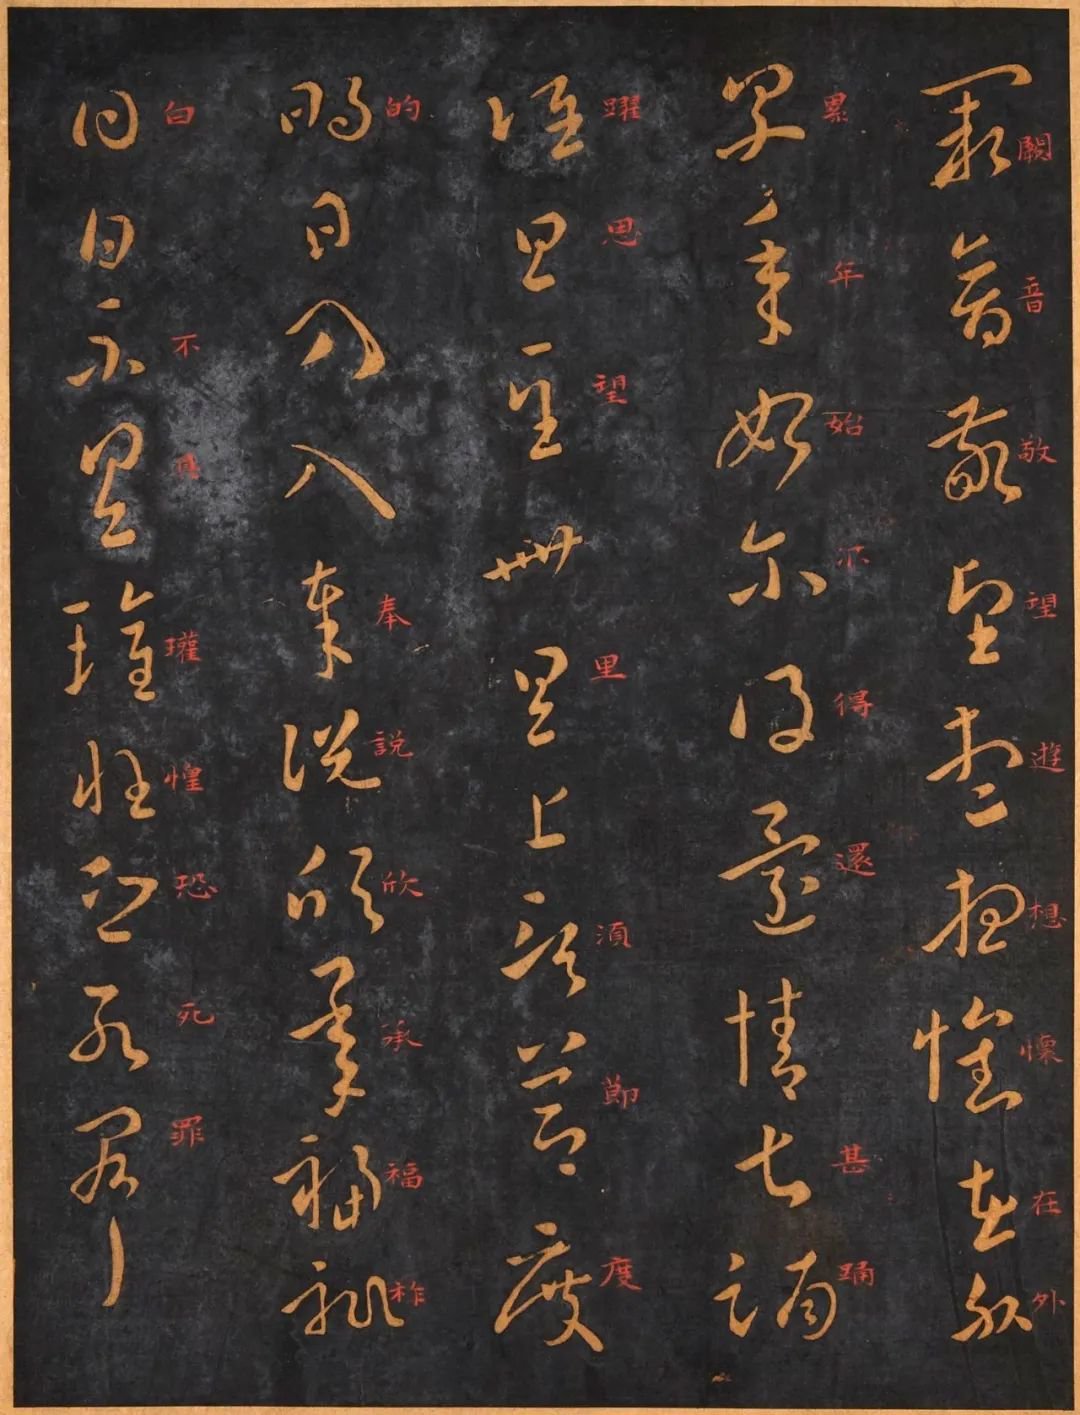 闕音敬望遊想懷在外
闕音敬望遊想懷在外
累年始尔得還甚踊
累年始尔得還情甚踊
躍思望里須節度
躍思望卅里上須節度
的奉說欣承福祚
的日乃入奉說欣承福祚
白不具瓘惶恐死罪
白日不具瓘惶恐死罪